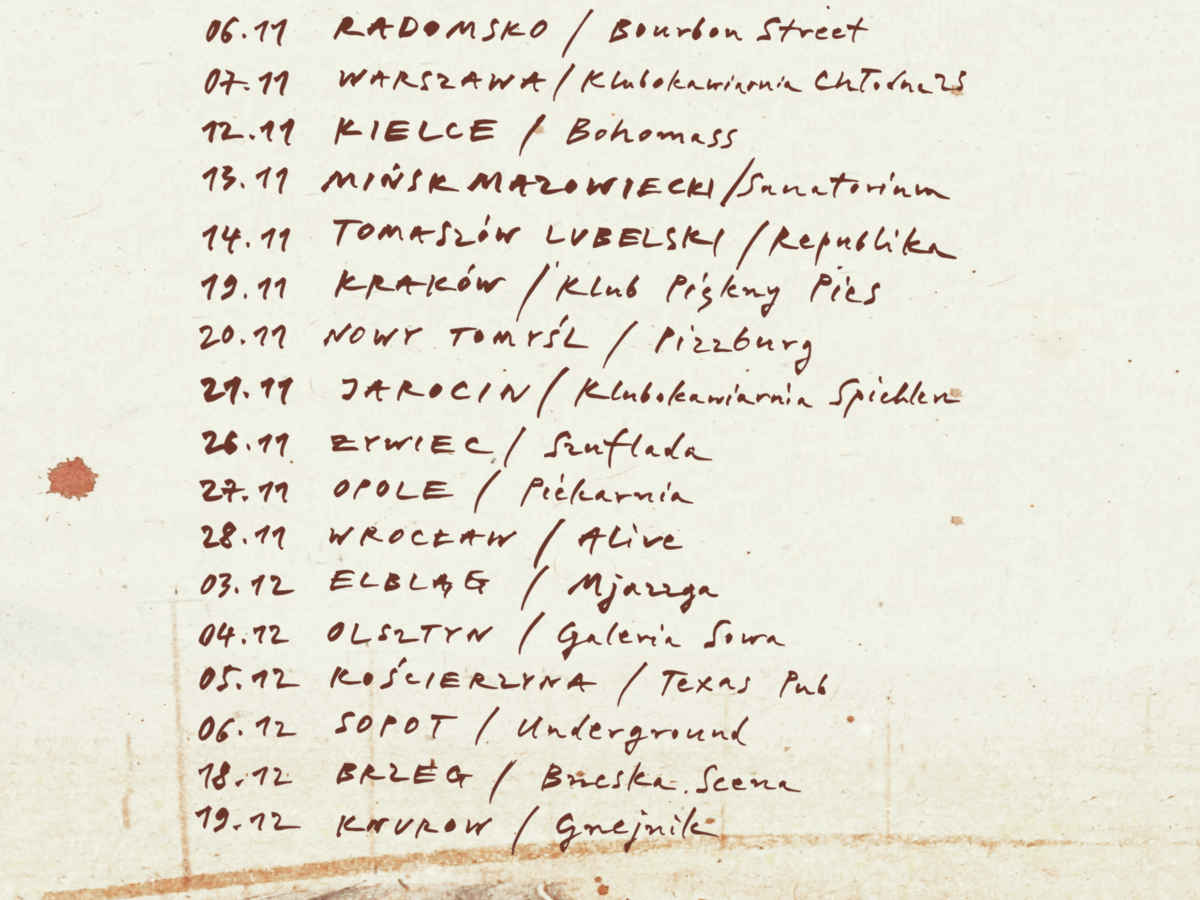 06.11 RADOMSKO / Bourbon Street
07.11 WARSZAWA / Klubokawiarnia Chłodna 25
12.11 KIELCE / Bohomass
13.11 MIŃSK MAZOWIECKI / Sanatorium
14.11 TOMASZÓW LUBELSKI / Republika
19.11 KRAKÓW / Klub Piękny Pies
20.11 NOWY TOMYŚL / Pizzburg
21.11 JAROCIN / Klubokawiarnia Spichlerz
26.11 ŻYWIEC / Szuflada
27.11 OPOLE / Piekarnia
28.11 WROCŁAW / Alive
03.12 ELBLĄG / Mjazzga
04.12 OLSZTYN / Galeria Sowa
05.12 KOŚCIERZYNA / Texas Pub
06.12 SOPOT / Underground
18.12 BRZEG / Brzeska Scena
19.12 KNUROW / Gzejnik